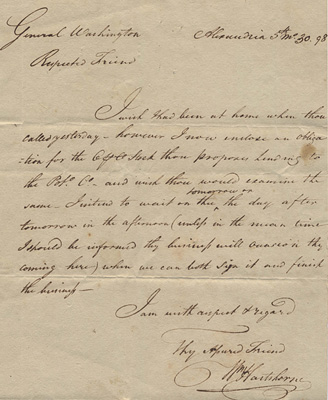 General Washington
Alexandria 5th Mo 30. 98
Respected Friend
I wish I had been at home when thou
called yesterday - however I now enclose an obliga
-tion for the 6 P Ct Stock thou proposes lending to
the Potk. Co. - and wish thou would examine the
same - I intend to wait on thee
tomorrow or
the day after
tomorrow in the afternoon (unless in the mean time
I should be informed thy business will occasion thy
coming here) when we can both sign it and finish
the business -
I am with respect & regard
Thy Assured Friend
Wm Hartshorne